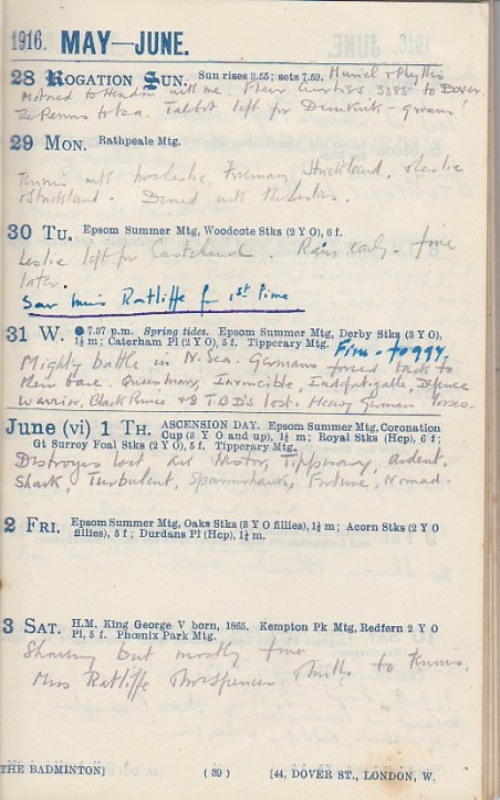 1916. MAY—JUNE.
28 ROGATION SUN. Sun rises 3.55; sets 7.59. Muriel & Phyllis
Motored to Hendon with me. Flew Curtiss 3385 to Dover.
to tea. Talbot left for Dunkirk -
29 MON. Rathpeale Mtg.
Tennis with Leslie, Freeman, Strickland,
& Strickland. Dined with the
30 TU. Epsom Summer Mtg, Woodcote Stks (2 Y O), 6 f.
Leslie left for Eastchurch. Rain early - fine
later.
Saw Miss Ratliffe for 1st time
31 W. ● 7.37 p.m. Spring tides. Epsom Summer Mtg, Derby Stks (3 Y O),
1½ m; Caterham Pl (2 Y O), 5 f. Tipperary Mtg. Fine - foggy.
Mighty battle in N. Sea. Germans forced back to
their base. Queen Mary, Invincible, Indefatigable, Defence
Warrior, Black Prince & 8 T.B.D's lost. Heavy German losses.
June (vi) 1 TH. ASCENSION DAY. Epsom Summer Mtg, Coronation
Cup (3 Y O and up), 1½ m; Royal Stks (Hcp), 6 f;
Gt Surrey Foal Stks (2 Y O), 5 f. Tipperary Mtg.
Destroyers lost are Nestor, Tipperary, Ardent,
Shark, Turbulent, Sparrowhawk, Fortune, Nomad.
2 FRI. Epsom Summer Mtg, Oaks Stks (3 Y O fillies), 1½ m; Acorn Stks (2 Y O
fillies), 5 f; Durdans Pl (Hcp), 1¼ m.
3 SAT. H.M. King George V born, 1865. Kempton Pk Mtg, Redfern 2 Y O
Pl, 5 f. Phœnix Park Mtg.
Showery but mostly fine
Miss Ratliffe to Tennis.
THE BADMINTON] ( 39 ) [44, DOVER ST., LONDON, W.